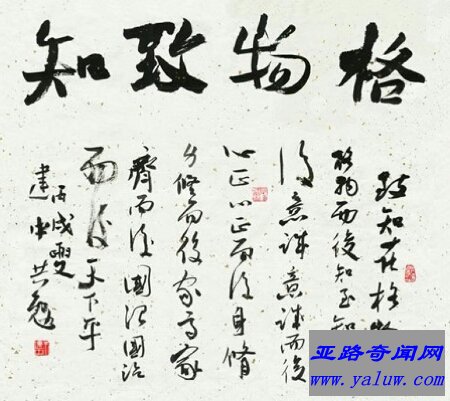 格物致知
致知在格
格物而後知至知
後意誠意誠而後
心正心正而後身脩
身修而後家齊家
齊而後國治國治
而後天下平
丙戌
建中共勉
亚路奇闻网
www.yaluw.com